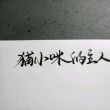 猫小咪的主人